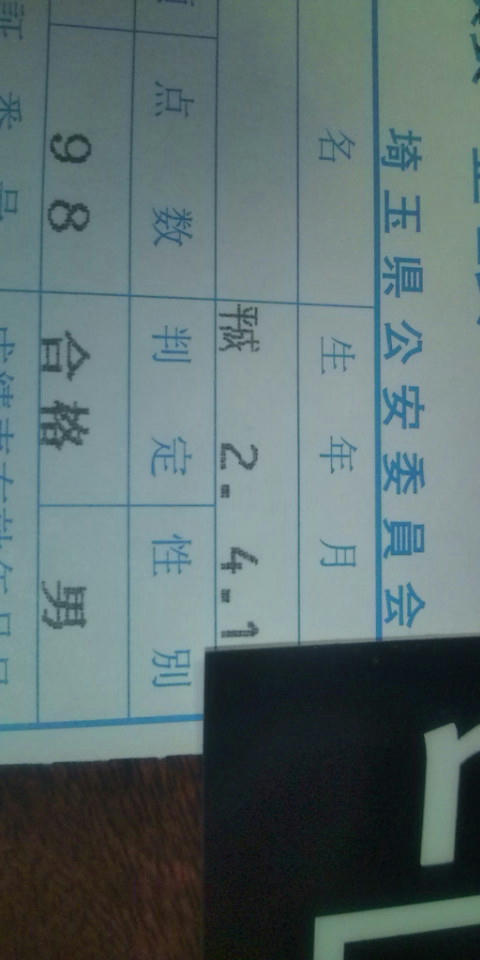 埼玉県公安委員会
名 生年月
平成 2. 4.1
点数 判定 性別
98 合格 男
証番号